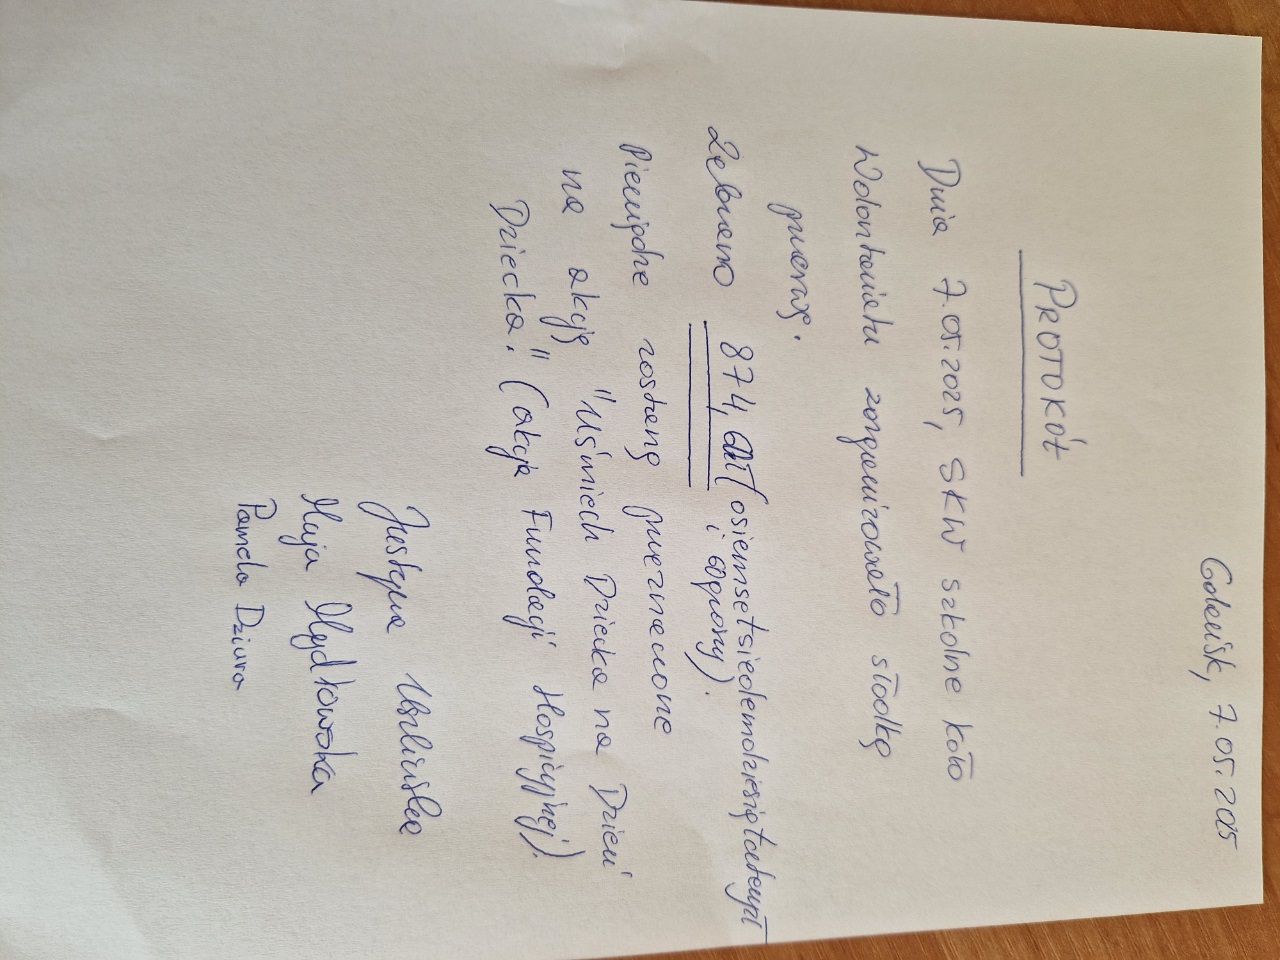 Gdańsk, 7.05.2025
PROTOKÓŁ
Dnia 7.05.2025, SKW szkolne koło
Wolontariatu zorganizowało słodką
przerwę.
Zebrano 874,60 zł (osiemsetsiedemdziesiątcztery zł
i 60 groszy).
Pieniądze zostaną przeznaczone
na akcję "Uśmiech Dziecka na Dzień
Dziecka." (akcja Fundacji Hospicyjnej).
Justyna
Maja
Pamela Dziura